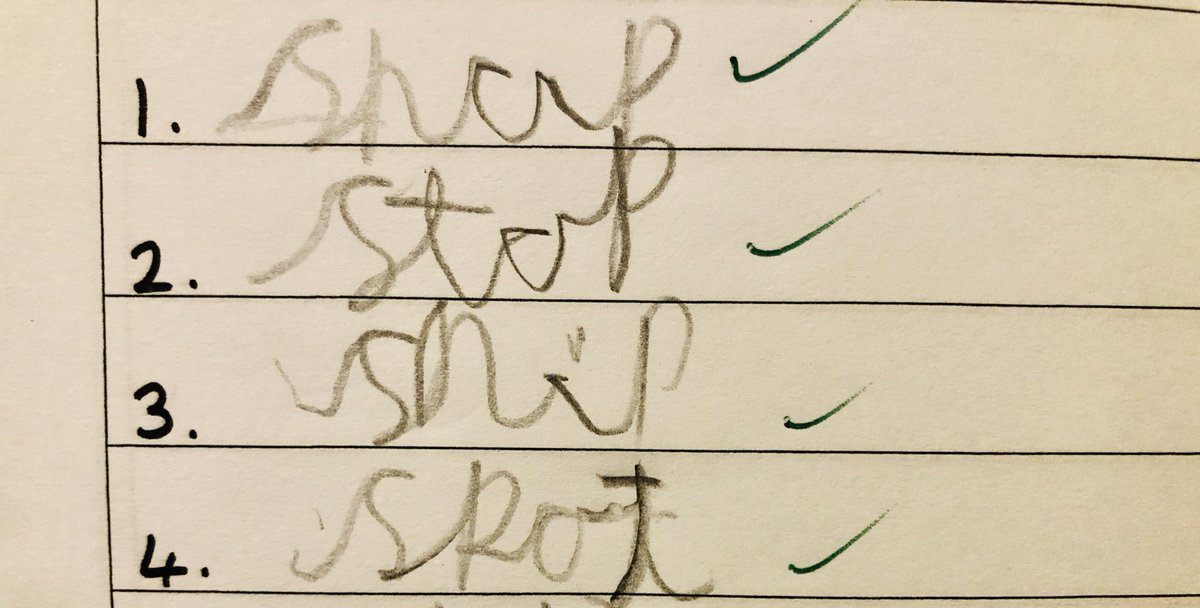 1. snap
2. stop
3. snip
4. spot